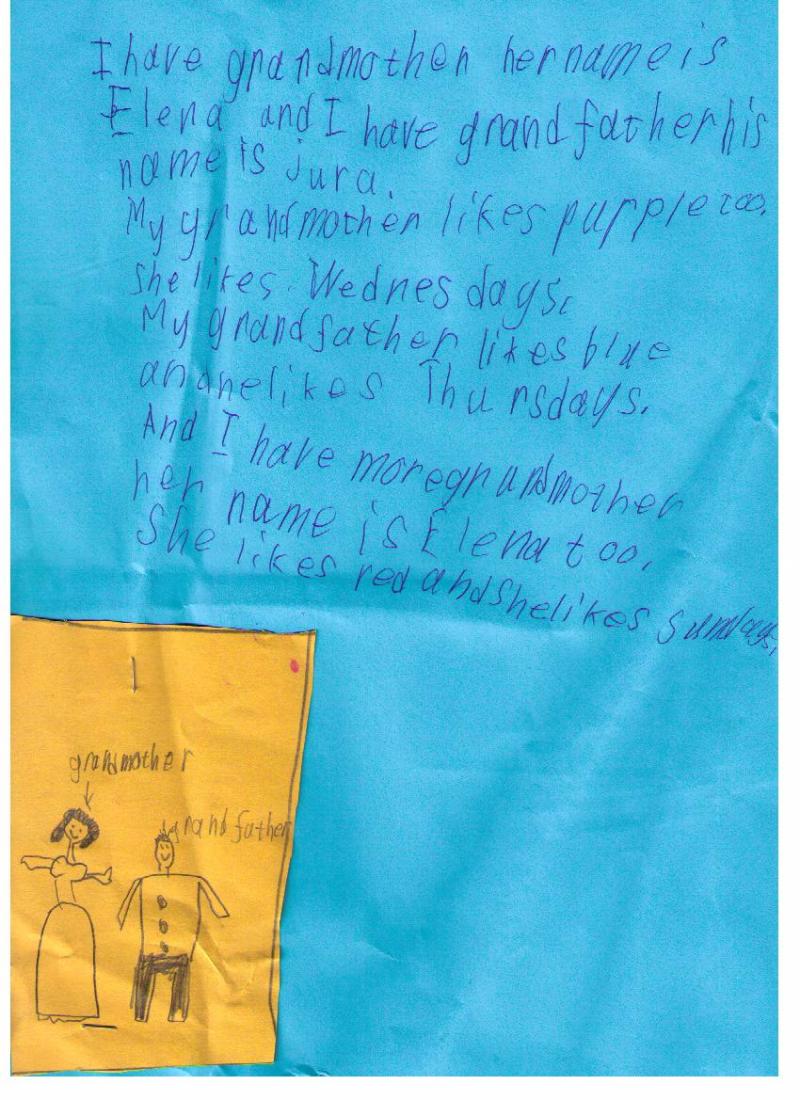 I have grandmother her name is
Elena and I have grandfather his
name is jura.
My grandmother likes purple too.
She likes. Wednesdays.
My grandfather likes blue
and he likes Thursdays.
And I have more grandmother
her name is Elena too.
She likes red and she likes sundays.
grandmother
grandfather